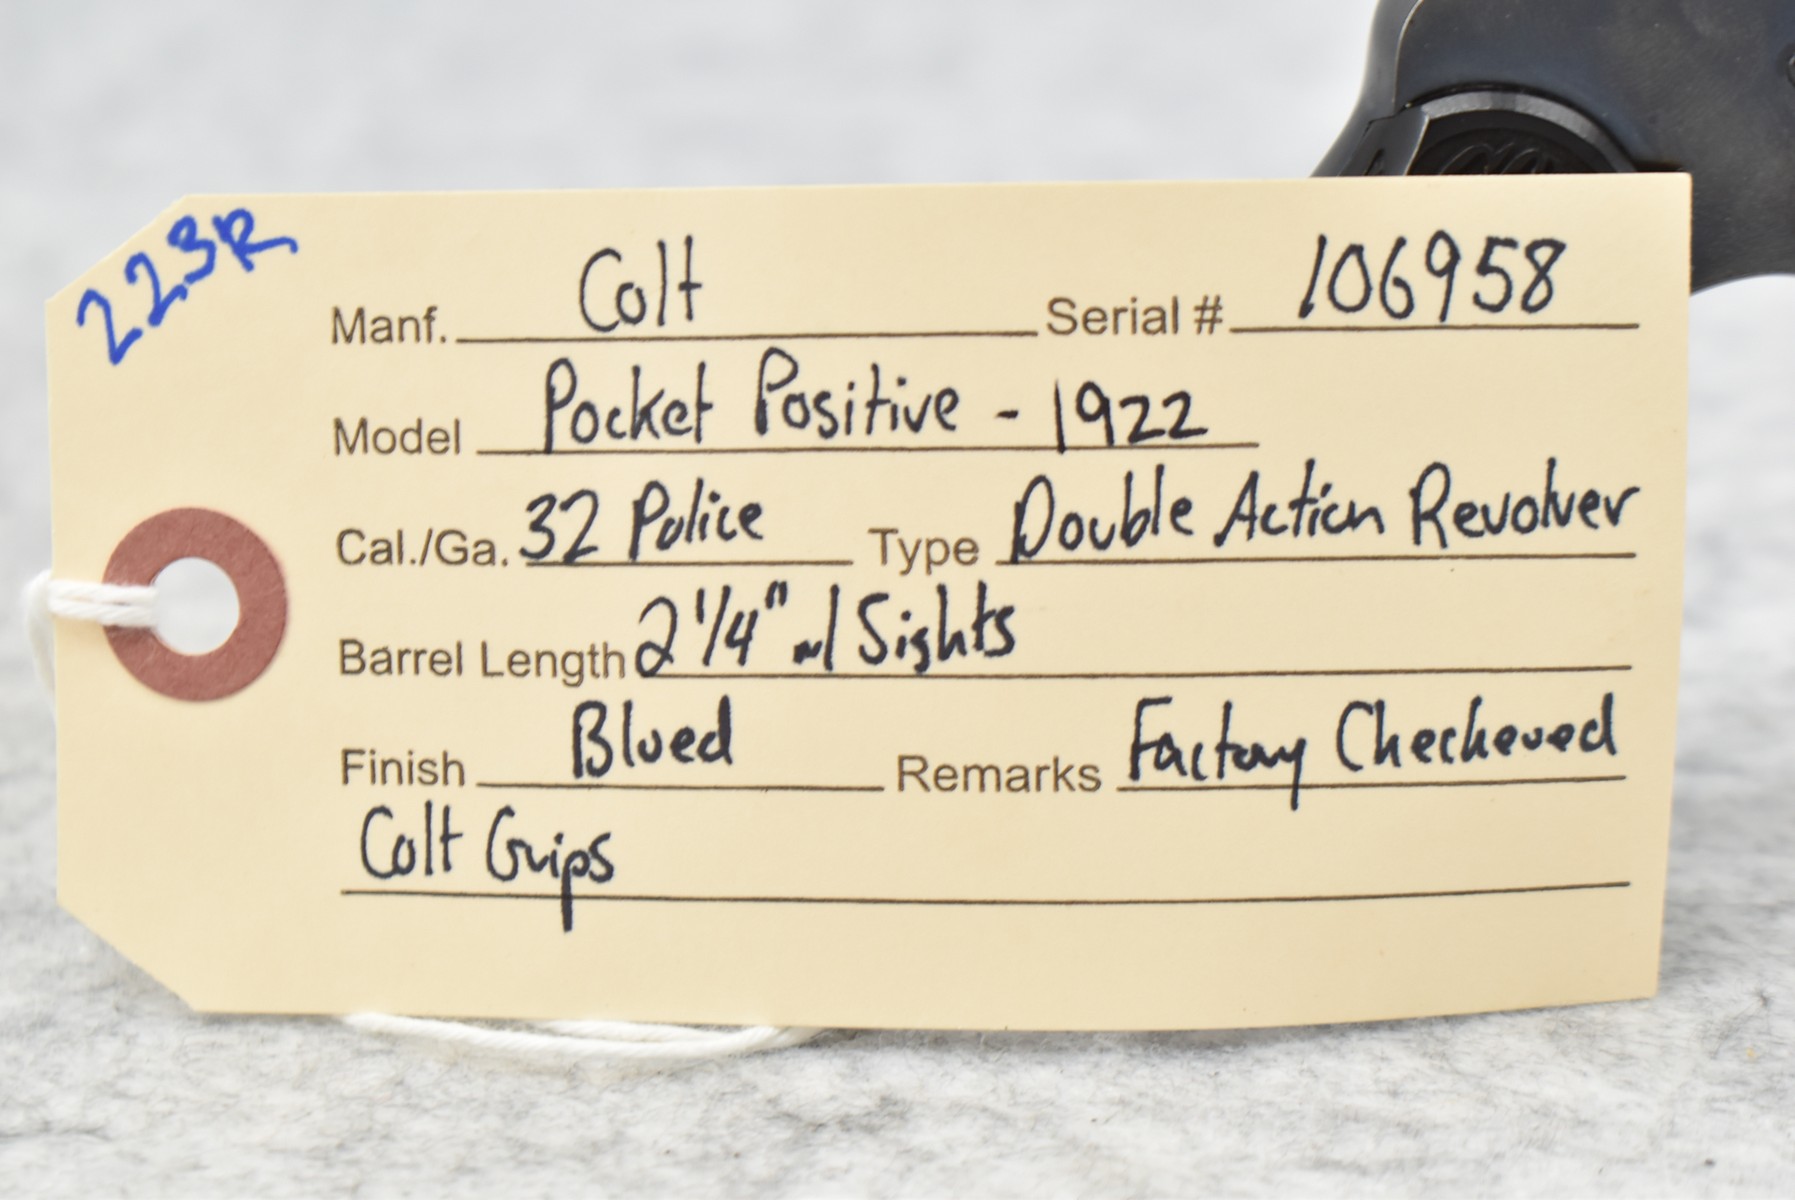 223R
Manf. Colt Serial # 106958
Model Pocket Positive - 1922
Cal./Ga. 32 Police Type Double Action Revolver
Barrel Length 2 1/4" w/ Sights
Finish Blued Remarks Factory Checkered
Colt Grips